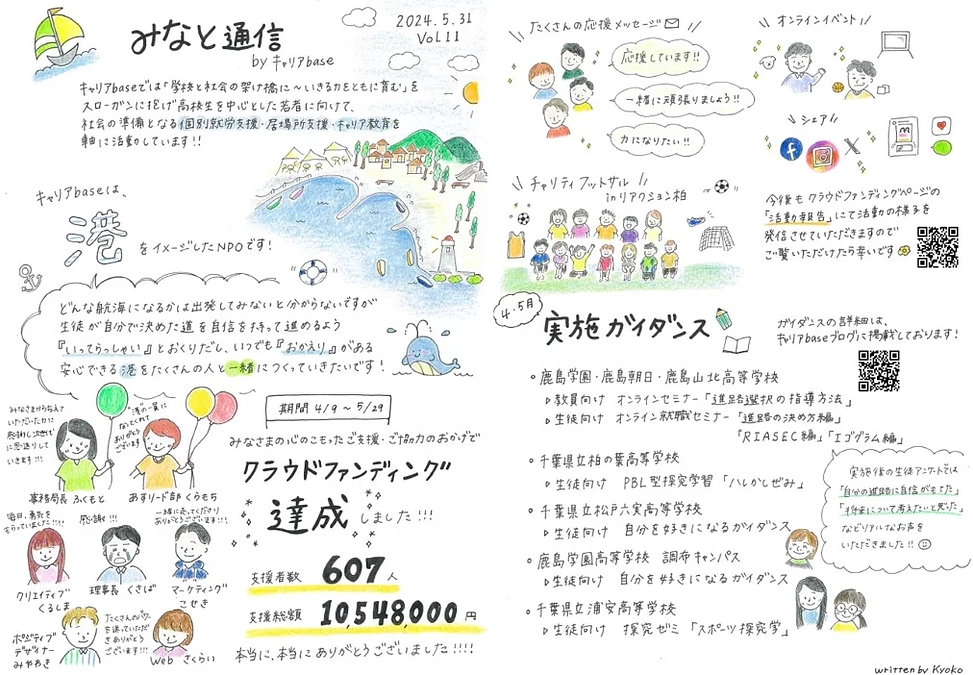 みなと通信
by キャリアbase
2024.5.31
Vol.11
キャリアbaseでは「学校と社会の架け橋に～いきる力をともに育む」を
スローガンに掲げ高校生を中心とした若者に向けて、
社会の準備となる個別就労支援・居場所支援・キャリア教育を
軸に活動しています!!
キャリアbaseは、
港
をイメージしたNPOです!
どんな航海になるかは出発してみないと分からないですが
生徒が自分で決めた道を自信を持って進めるよう
『いってらっしゃい』とおくりだし、いつでも『おかえり』がある
安心できる港をたくさんの人と一緒につくっていきたいです!
みなさまから与えて
いただいた力に
感謝し次世代
に恩送りして
いきます!!!
"港"の一員に
なってくれて
ありがとう
ございます
事務局長 ふくもと
あすリード部 くらもち
毎日、勇気を
もらっていました!!!!
感謝!!!
一緒に走ってくださり
ありがとうございます!!!
クリエイティブ
くるしま
理事長 くさば
マーケティング
こせき
ポジティブ
デザイナー
みやざき
たくさんのパワー
を送っていただき
ありがとう
ございます!!!
Web さくらい
期間 4/9～5/29
みなさまの心のこもったご支援・ご協力のおかげで
クラウドファンディング
達成しました!!!
支援者数 607人
支援総額 10,548,000円
本当に、本当にありがとうございました!!!!
たくさんの応援メッセージ
応援しています!!
一緒に頑張りましょう!!
力になりたい!!
オンラインイベント
シェア
チャリティフットサル
inリアクション柏
今後もクラウドファンディングページの
「活動報告」にて活動の様子を
発信させていただきますので
ご覧いただけたら幸いです
4・5月
実施ガイダンス
ガイダンスの詳細は、
キャリアbaseブログに掲載しております!
鹿島学園・鹿島朝日・鹿島山北高等学校
▷教員向け オンラインセミナー「進路選択の指導方法」
▷生徒向け オンライン就職セミナー「進路の決め方編」
「RIASEC編」「エゴグラム編」
千葉県立柏の葉高等学校
▷生徒向け PBL型探究学習「ハしかしぜみ」
千葉県立松戸六実高等学校
▷生徒向け 自分を好きになるガイダンス
鹿島学園高等学校 調布キャンパス
▷生徒向け 自分を好きになるガイダンス
千葉県立浦安高等学校
▷生徒向け 探究ゼミ「スポーツ探究学」
実施後の生徒アンケートでは
「自分の進路に自信がもてた」
「将来について考えたいと思った」
などリアルなお声を
いただきました!!
written by Kyoko